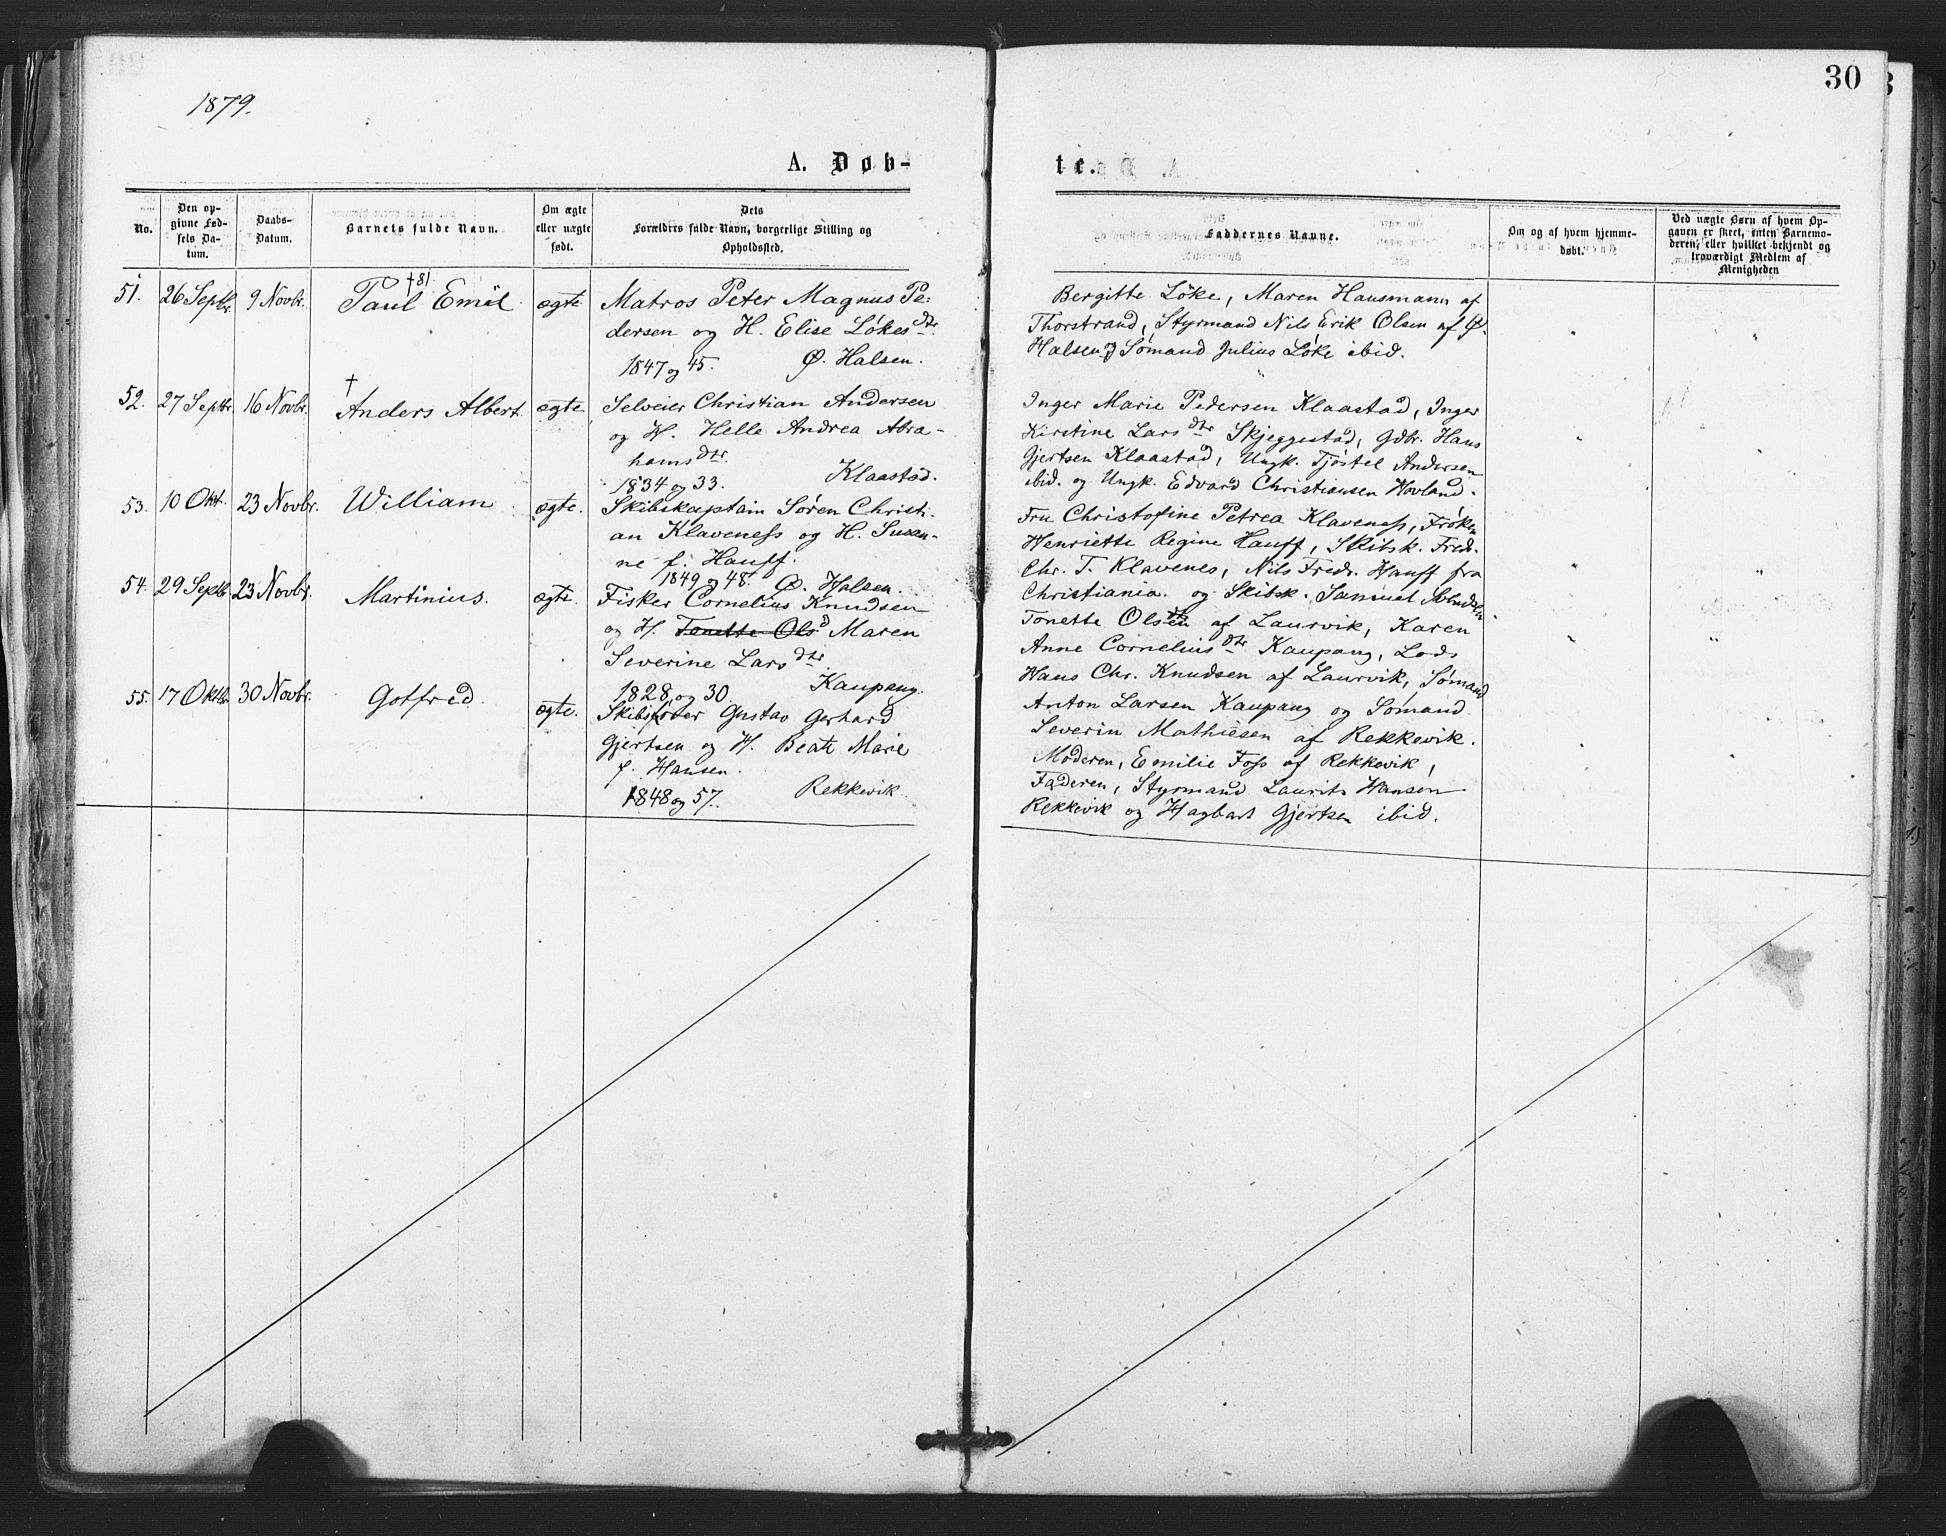 30
1879.
A. Døb-
te.
No.
Den op-
givne Fød-
sels Da-
tum.
Daabs-
Datum.
Barnets fulde Navn.
Om ægte
eller uægte
født.
Dets
Forældres fulde Navn, borgerlige Stilling og
Opholdssted.
Faddernes Navne.
Om og af hvem hjemme-
døbt.
Ved uægte Børn af hvem Op-
gaven er skeet, enten Barnemo-
deren, eller hvilket bekjendt og
troværdigt Medlem af
Menigheden
51. 26 Septbr. 9 Novbr. Paul Emil †81. ægte
Matros Peter Magnus Pe-
dersen og H. Elise Løkesdtr.
1847 og 45. Ø. Halsen.
Bergitte Løke, Maren Hausmann af
Thorstrand, Styrmand Nils Erik Olsen af Ø.
Halsen og Sømand Julius Løke ibid.
52. 27 Septbr. 16 Novbr. † Anders Albert ægte
Selveier Christian Andersen
og H. Helle Andrea Abra-
hamsdtr.
1834 og 33. Klaastad.
Inger Marie Pedersen Klaastad, Inger
Kirstine Larsdtr Skjeggestad, Gdbr. Hans
Gjertsen Klaastad, Ungk. Tjøstel Andersen
ibid. og Ungk. Edvard Christiansen Hovland.
53. 10 Okt. 23 Novbr. William ægte.
Skibskaptain Søren Christi-
an Klaveness og H. Susan-
ne f. Hauff.
1849 og 48. Ø. Halsen.
Fru Christofine Petrea Klaveness, Frøken
Henriette Regine Hauff, Skibsk. Fredr.
Chr. T. Klavenes, Nils Fredr. Hauff fra
Christiania. og Skibsk. Samuel
54. 29 Septbr. 23 Novbr. Martinius. ægte.
Fisker Cornelius Knudsen
og H. Tonette Olsd Maren
Severine Larsdtr.
1828 og 30. Kaupang.
Tonette Olsen af Laurvik, Karen
Anne Corneliusdtr Kaupang, Lods
Hans Chr. Knudsen af Laurvik, Sømand
Anton Larsen Kaupang og Sømand
Severin Mathiesen af Rekkevik.
55. 17 Oktbr. 30 Novbr. Gotfred ægte.
Skibsfører Gustav Gerhard
Gjertsen og H. Beate Marie
f. Hansen.
1848 og 57. Rekkevik
Moderen, Emilie Foss af Rekkevik,
Faderen, Styrmand Laurits Hansen
Rekkevik og Hagbart Gjertsen ibid.